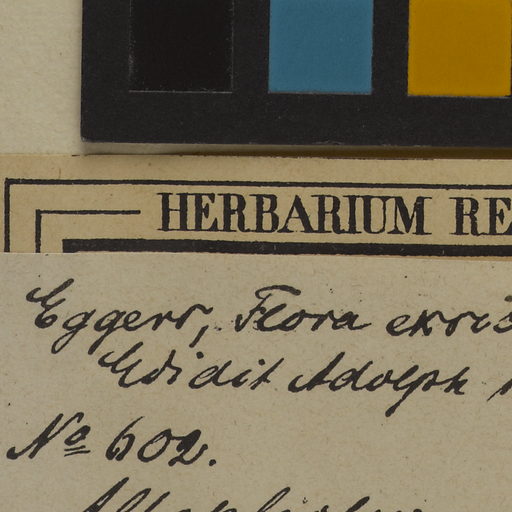 HERBARIUM RE
Eggers, Flora exsic
Edidit Adolph
No 602.